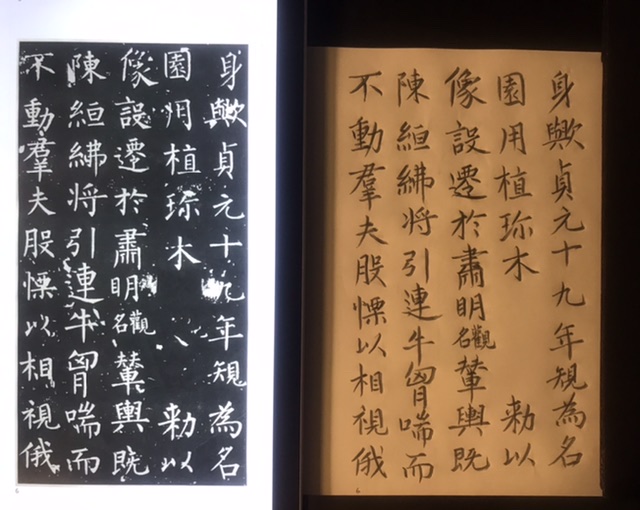 身歟貞元十九年規為名
園用植珎木 勅以
像設遷於肅明觀名輦輿既
陳絙紼将引連牛胷喘而
不動羣夫股慄以相視俄
身歟貞元十九年規為名
園用植珎木 勅以
像設遷於肅明觀名輦輿既
陳絙紼将引連牛胷喘而
不動羣夫股慄以相視俄